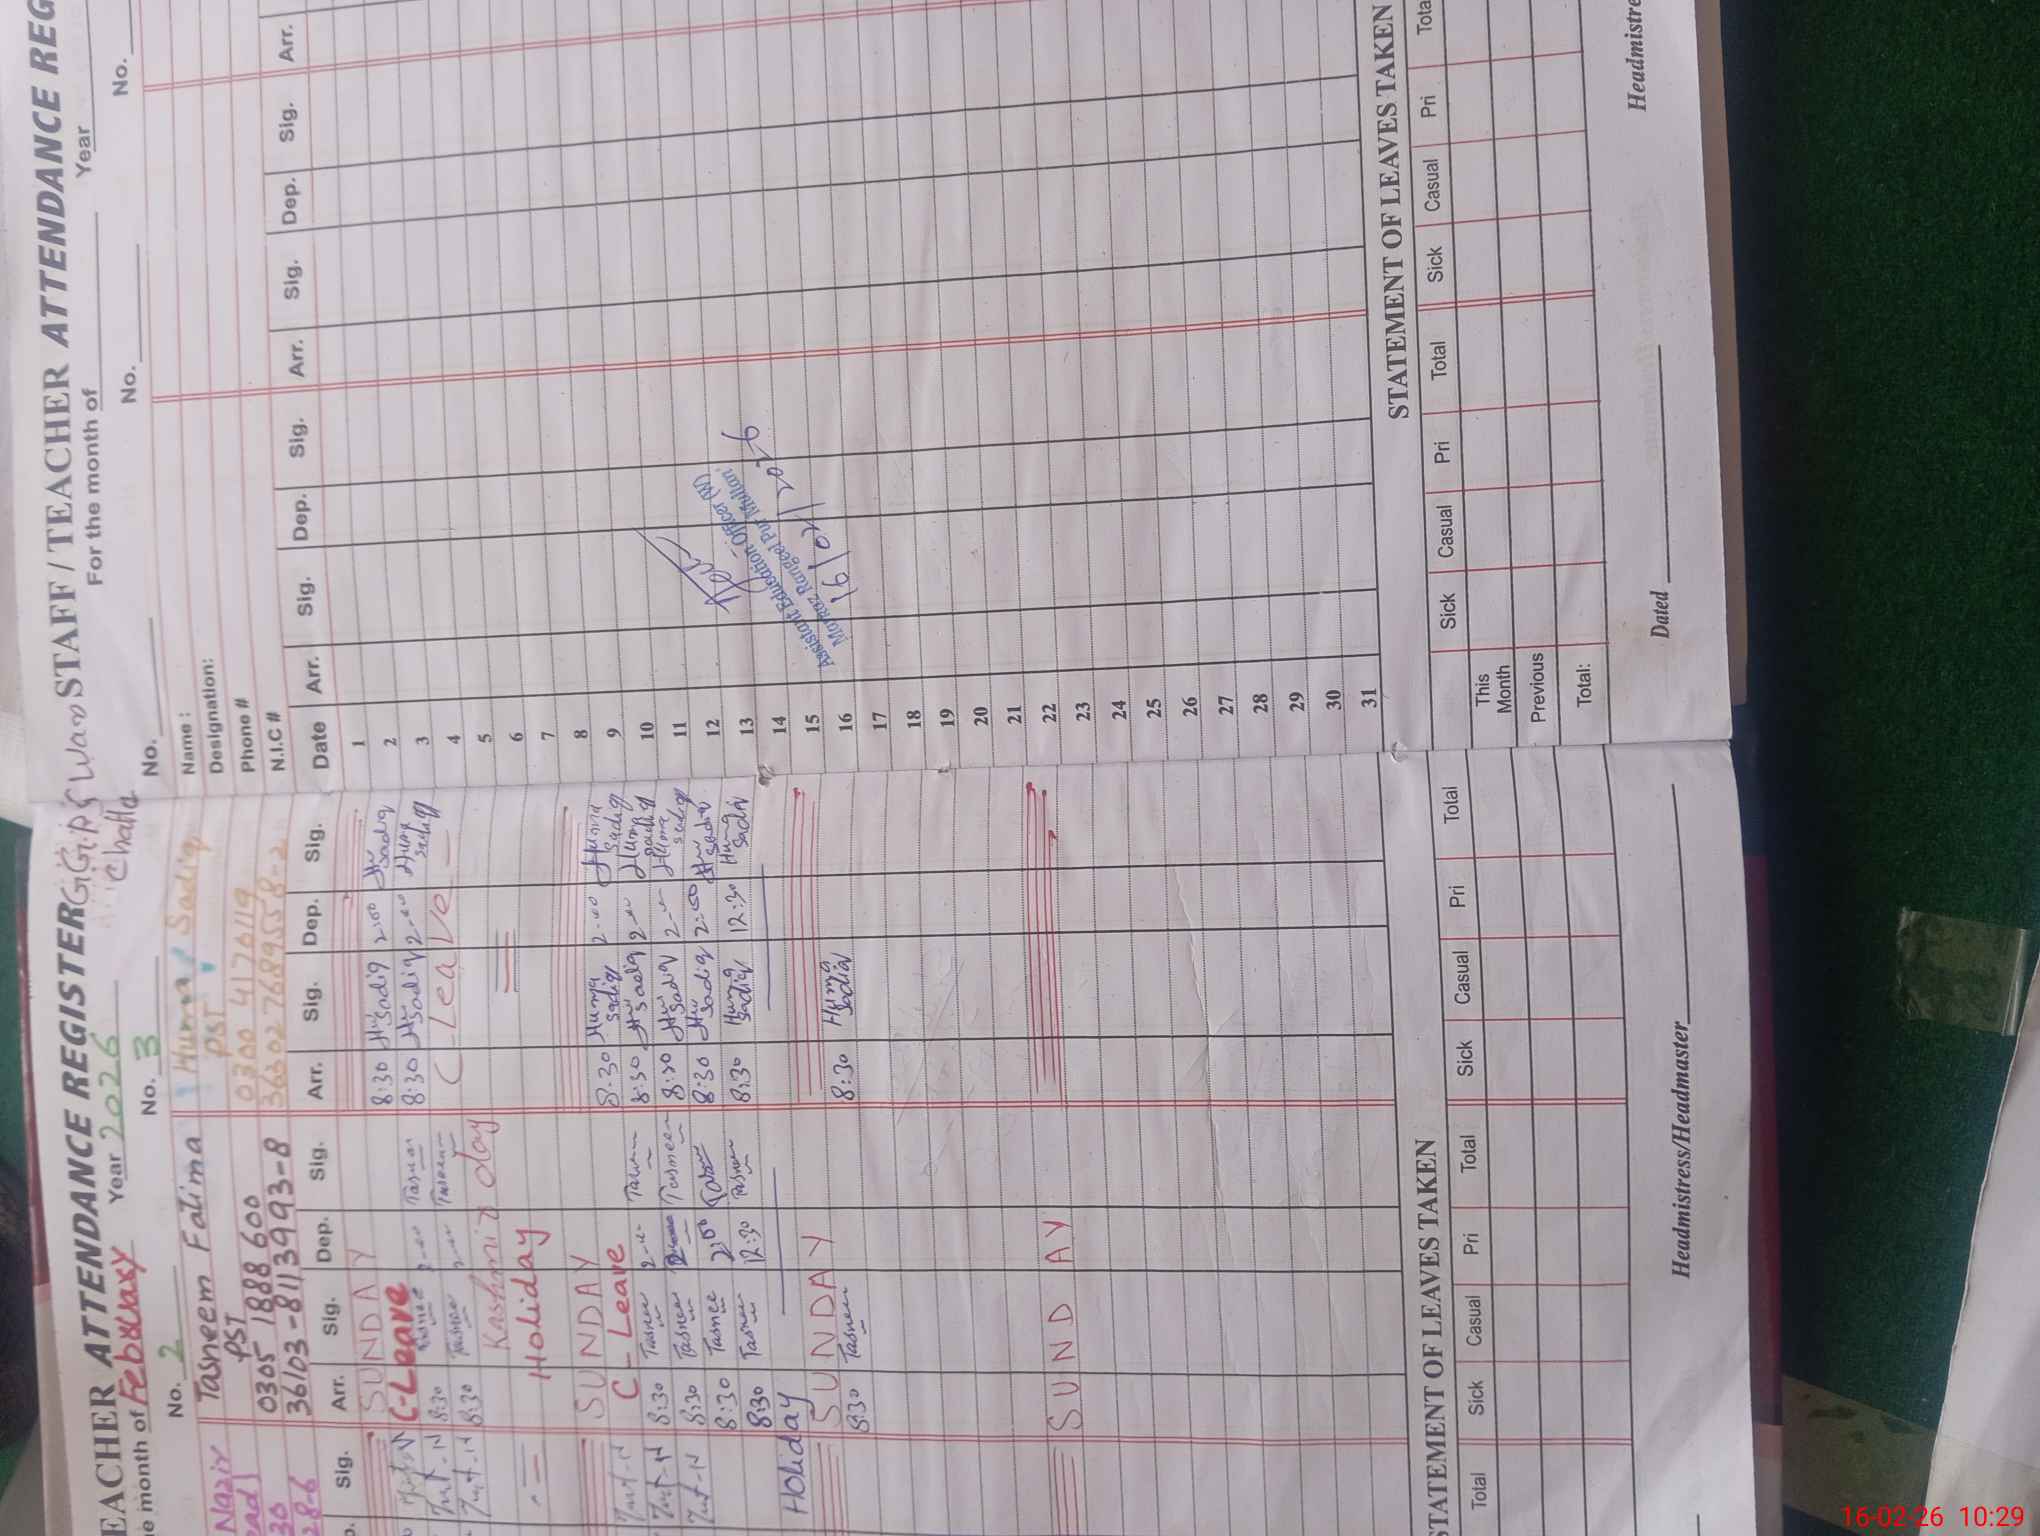 EACHER ATTENDANCE REGISTER G.G.P.S
Chatta
e month of February Year 2026
No. 2 No. 3
Nazir
28-6
Tasneem Fatima
PST
0305 1888 600
36103-8113993-8
Huma Sadiq
PST
0300 4176119
Sig. Arr. Sig. Dep. Sig. Arr. Sig. Dep. Sig.
SUNDAY
C-Leave 8:30 Sadiq 2:00 Sadiq
8:30 2-00 8:30 Sadiq 2-00 Huma Sadiq
8:30 Tasneem 2-00 Tasneem C-Leave
Kashmir day
Holiday
SUNDAY
C-Leave 8:30 Huma Sadiq 2-00 Huma Sadiq
8:30 Tasneem 2-00 Tasneem 8:30 Sadiq 2-00 Huma Sadiq
8:30 Tasneem Tasneem 8:30 Sadiq 2-00 Huma Sadiq
8:30 Tasnee 2:00 8:30 Sadiq 2:00 Sadiq
8:30 Tasneem 12:30 Tasneem 8:30 Huma Sadiq 12:30 Huma Sadiq
Holiday
SUNDAY
8:30 Tasneem 8:30 Huma Sadiq
SUNDAY
STATEMENT OF LEAVES TAKEN
Total Sick Casual Pri Total Sick Casual Pri Total
Headmistress/Headmaster
STAFF / TEACHER ATTENDANCE REG
For the month of Year
No. No. No.
Name :
Designation:
Phone #
N.I.C #
Date Arr. Sig. Dep. Sig. Arr. Sig. Dep. Sig. Arr.
1
2
3
4
5
6
7
8
9
10
11
12
13
14
15
16
17
18
19
20
21
22
23
24
25
26
27
28
29
30
31
Assistant Education Officer (W)
Markaz Rangeel Pur Multan.
16/02/2026
STATEMENT OF LEAVES TAKEN
Sick Casual Pri Total Sick Casual Pri Tota
This Month
Previous
Total:
Dated Headmistre
16-02-26 10:29